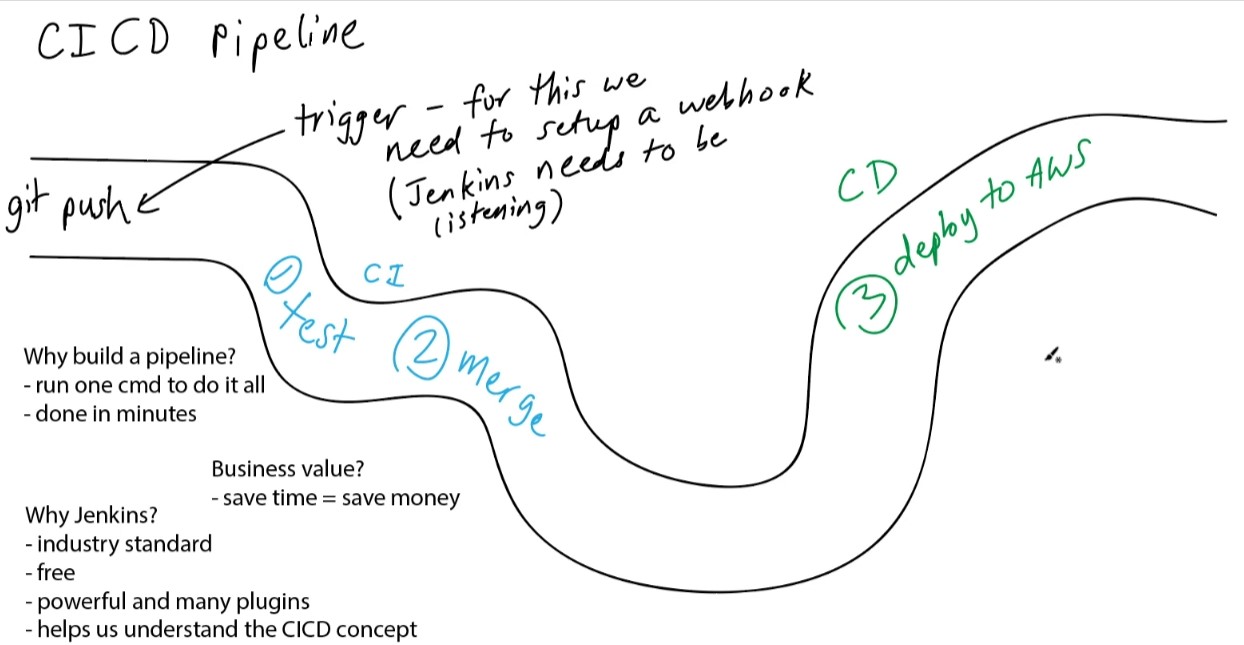 CICD Pipeline
trigger - for this we
need to setup a webhook
(Jenkins needs to be
listening)
git push
CI
① test
② merge
CD
③ deploy to AWS
Why build a pipeline?
- run one cmd to do it all
- done in minutes
Business value?
- save time = save money
Why Jenkins?
- industry standard
- free
- powerful and many plugins
- helps us understand the CICD concept